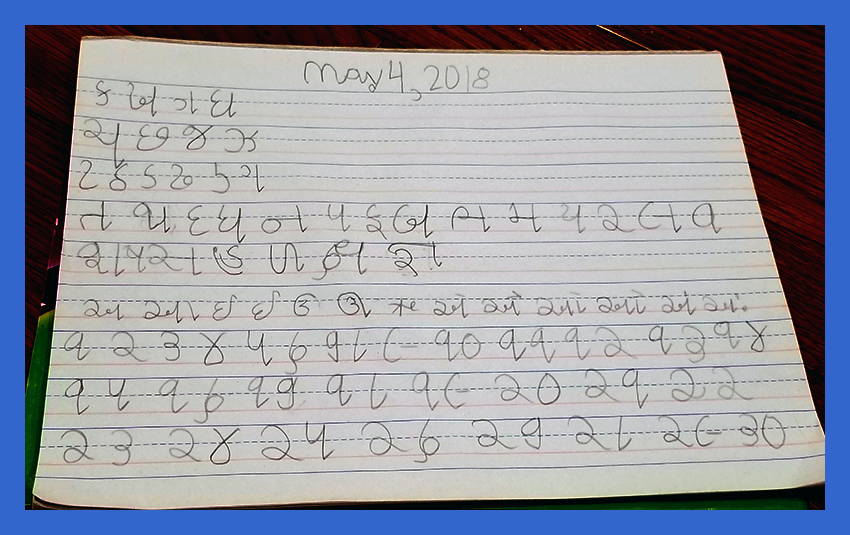 May 4, 2018
ક ખ ગ ઘ
ચ છ જ ઝ
ટ ઠ ડ ઢ ણ
ત થ દ ધ ન પ ફ બ ભ મ ય ર લ વ
શ ષ સ હ ળ ક્ષ જ્ઞ
અ આ ઇ ઈ ઉ ઊ ઋ એ ઐ ઓ ઔ અં અઃ
૧ ૨ ૩ ૪ ૫ ૬ ૭ ૮ ૯ ૧૦ ૧૧ ૧૨ ૧૩ ૧૪
૧૫ ૧૬ ૧૭ ૧૮ ૧૯ ૨૦ ૨૧ ૨૨
૨૩ ૨૪ ૨૫ ૨૬ ૨૭ ૨૮ ૨૯ ૩૦